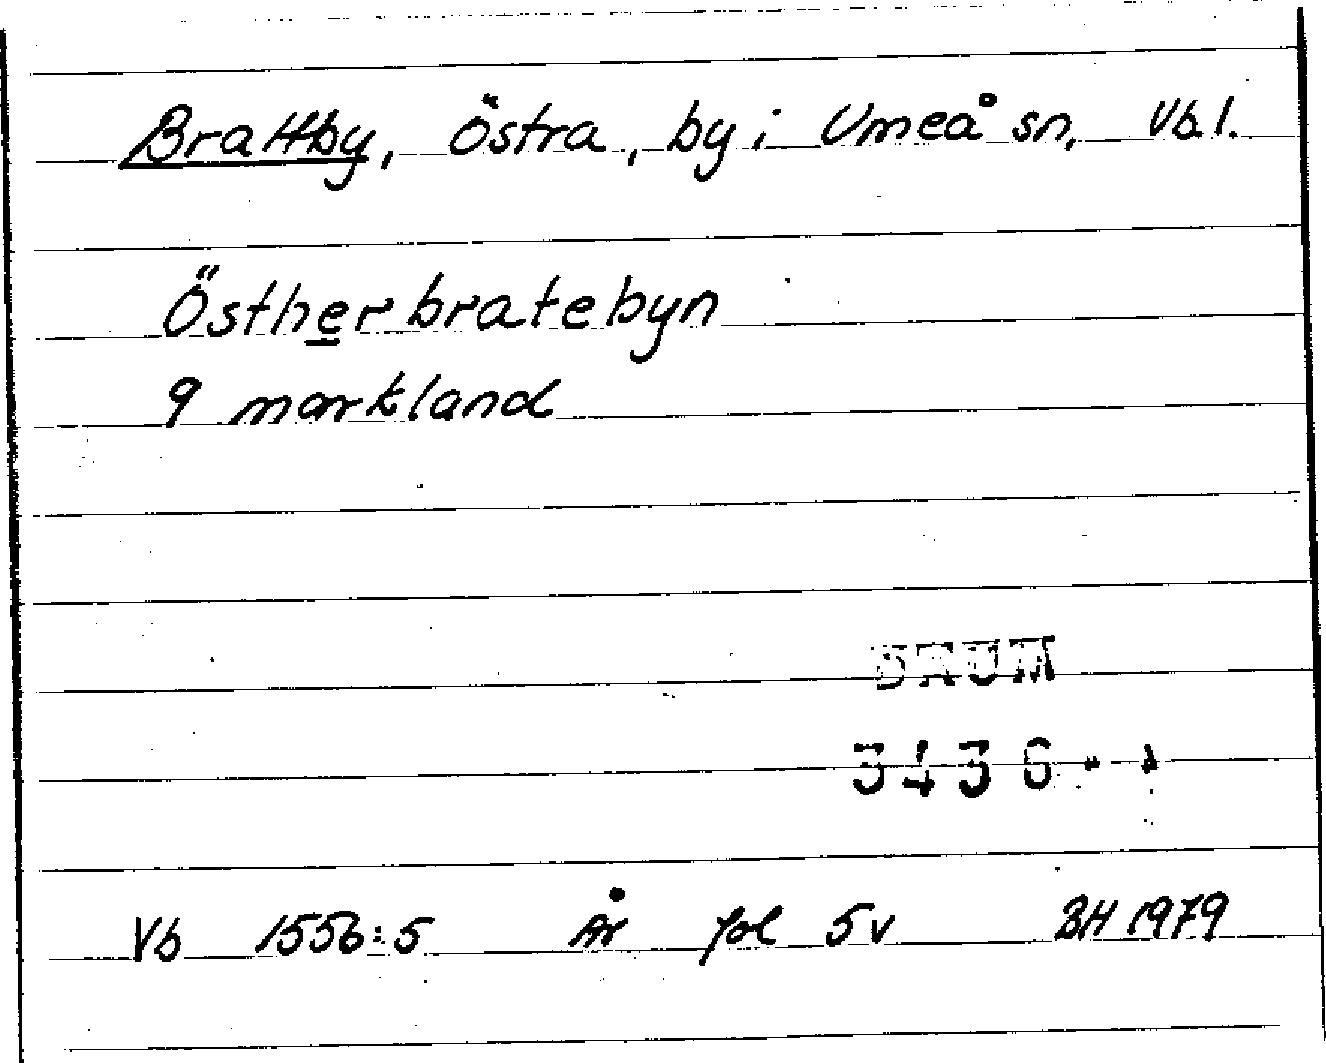 Brattby, Östra, by i Umeå sn, Vbl.
Östherbratebyn
9 markland
DAUM
3436
Vb 1556:5 År fol 5v BH 1979